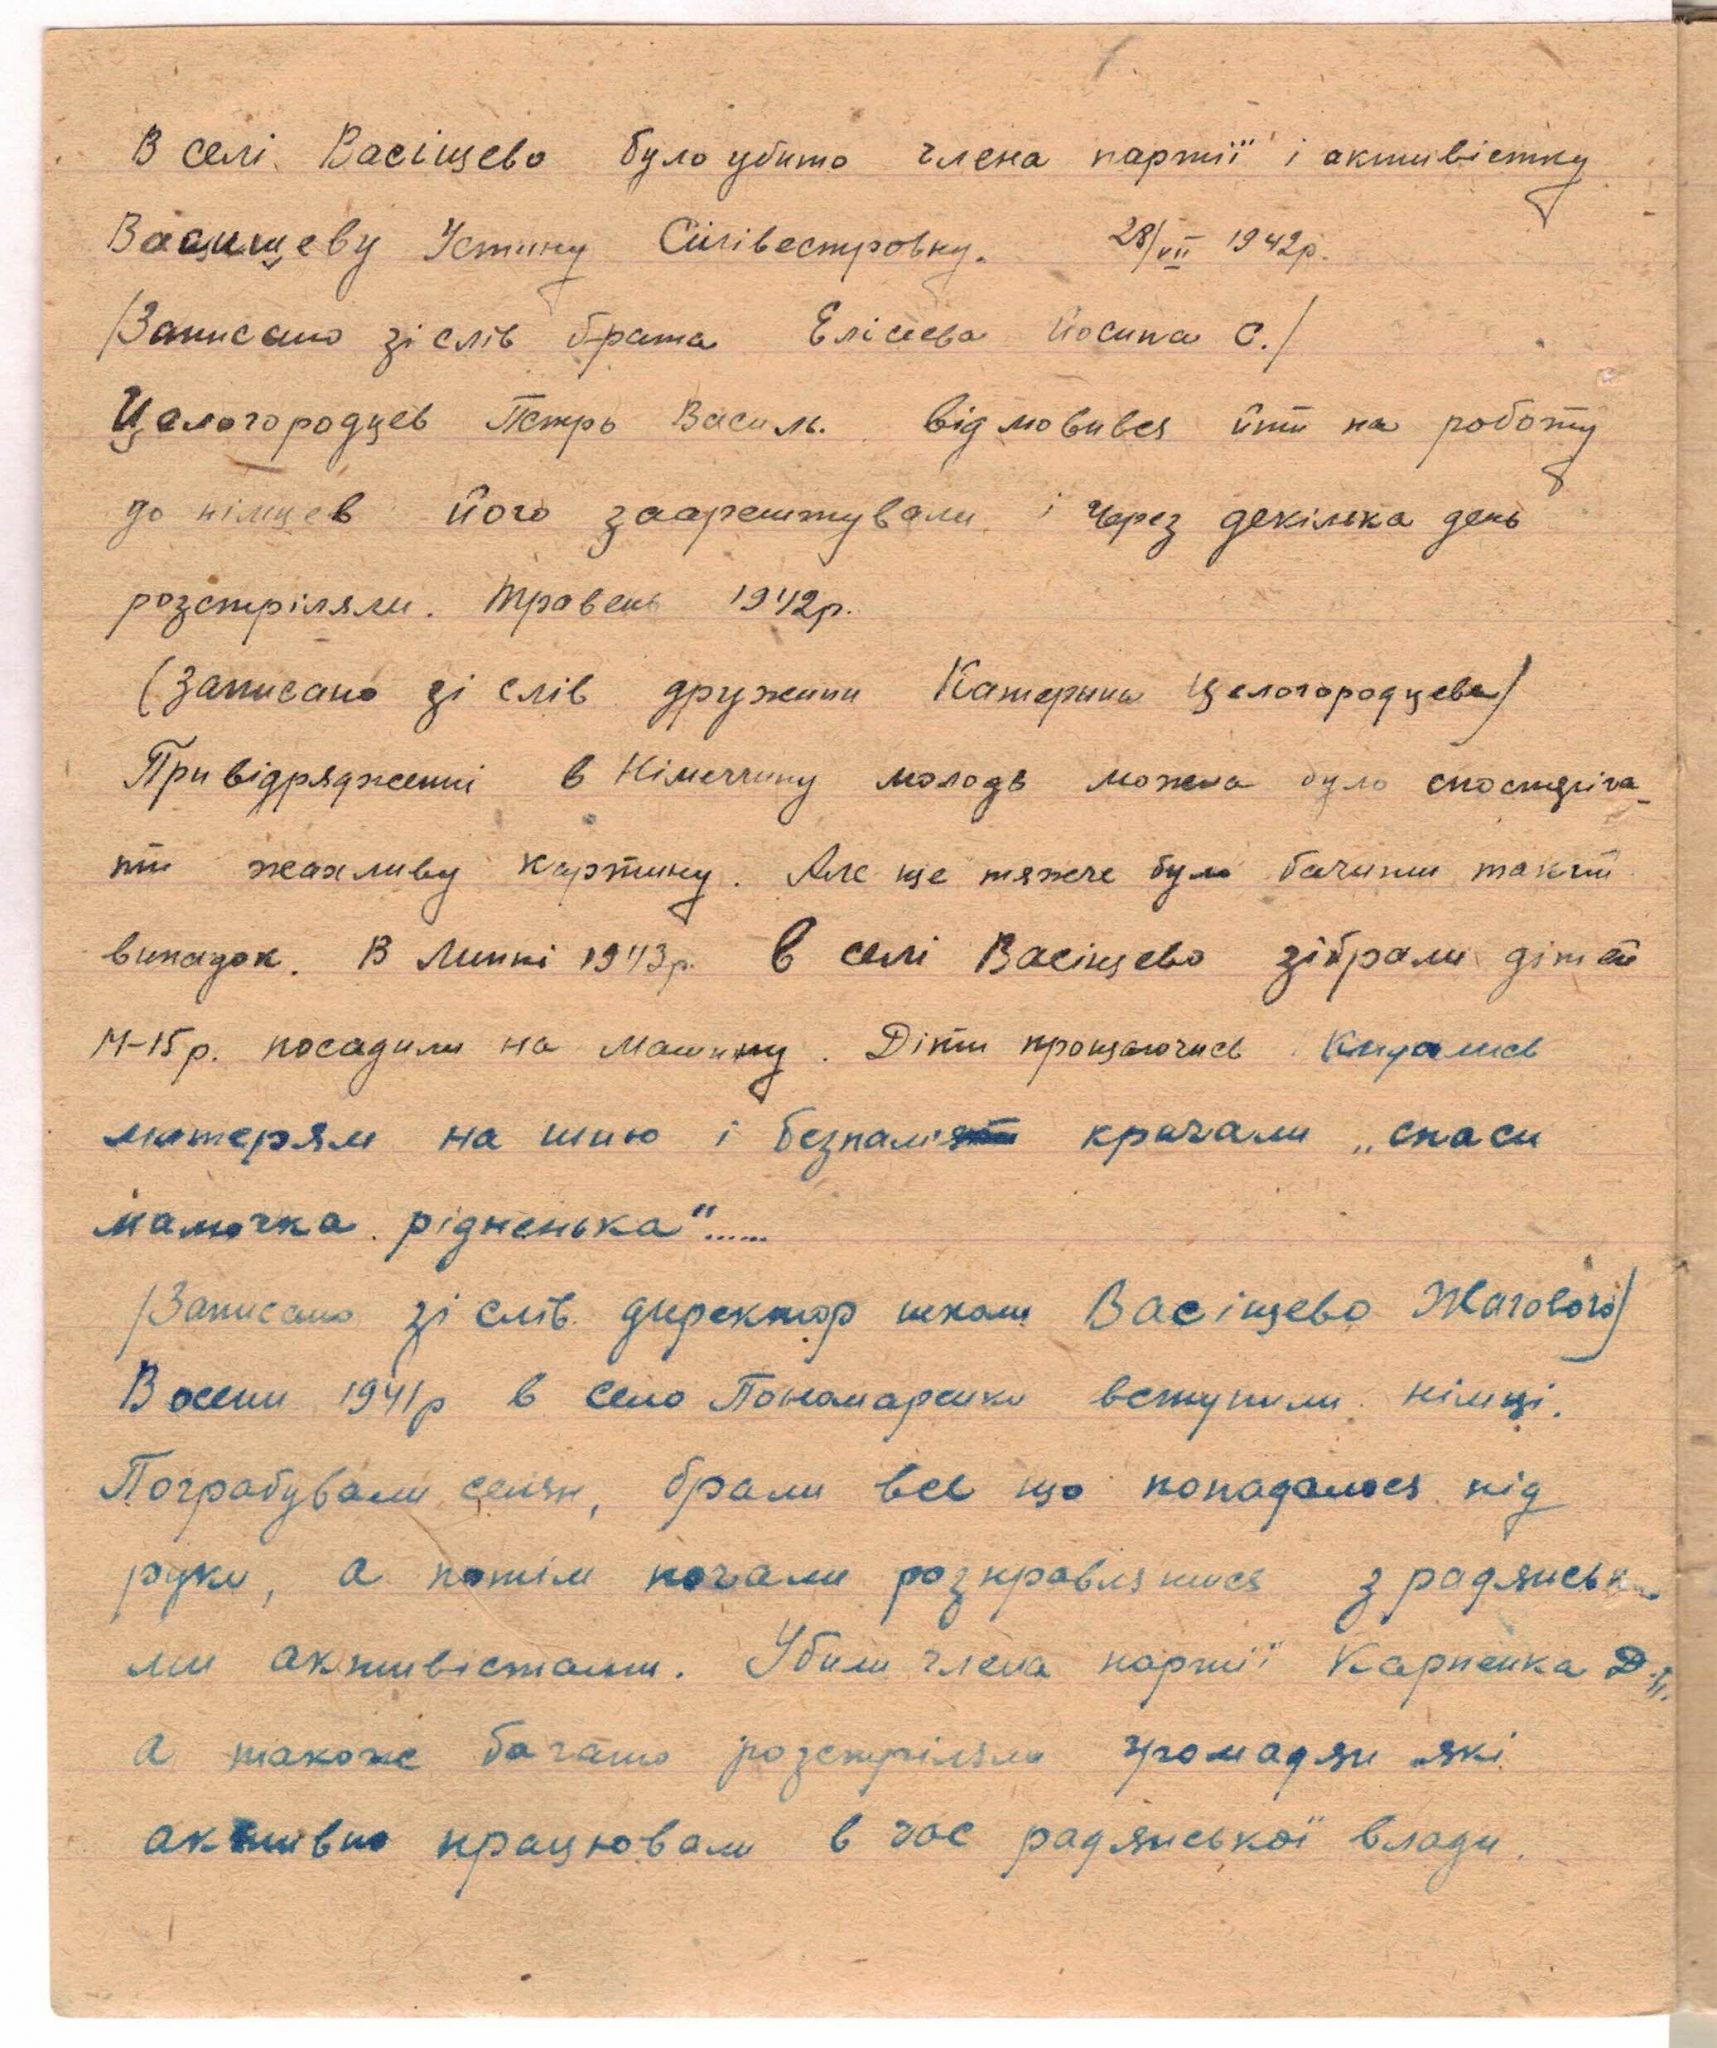 В селі Васіщево було убито члена партії і активістку
Васищеву Устину Сілівестровну. 28/VII 1942р.
/Записано зі слів брата Елісеева Йосипа С./
Целогородцев Петро Василь. відмовився йти на роботу
до німцев його заарештували і через декілька день
розстріляли. Травень 1942р.
(Записано зі слів дружини Катерини Целогородцева)
При відрядженні в Німеччину молодь можна було спостеріга-
ти жахливу картину. Але ще тяжче було бачити такий
випадок. В липні 1943р. в селі Васіщево зібрали дітей
14-15р. посадили на машину. Діти прощаючись кидались
матерям на шию і безпам'яті кричали „спаси
мамочка рідненька"......
/Записано зі слів директор школи Васіщево Жагового/
Восени 1941р в село Пономаренки вступили німці.
Пограбували селян, брали все що попадалося під
руки, а потім почали розправлятися з радянськи-
ми активістами. Убили члена партії Карпенка
а також багато розстріляли громадян які
активно працювали в час радянської влади.